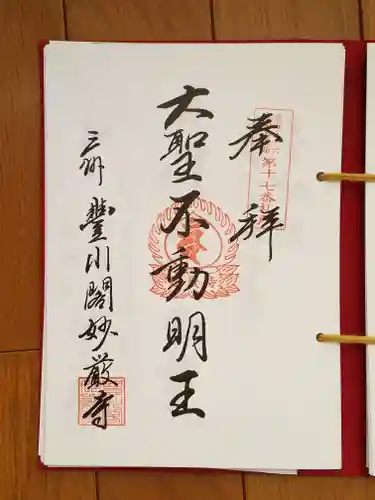 奉拝
第十七番
大聖不動明王
三州 豐川閣妙厳寺